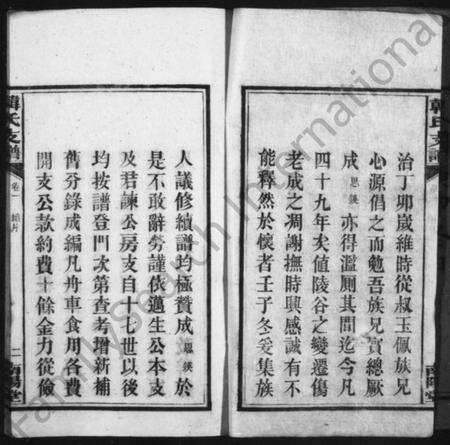 治丁卯歲維時從叔玉佩族兄
心源倡之而勉吾族兄實總厥
成思鍈亦得濫厠其間迄今凡
四十九年矣値陵谷之變遷傷
老成之凋謝撫時興感誠有不
能釋然於懷者壬子冬爰集族
人議修續譜均極贊成思鍈於
是不敢辭勞謹依適生公本支
及君諫公房支自十七世以後
均按譜登門次第查考增新補
舊分錄成編凡舟車食用各費
開支公款約費十餘金力從儉
韓氏支譜
卷一
二
南陽堂
FamilySearch International